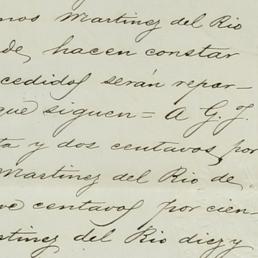 nos Martinez del Rio
de, hacen constar
cedidos serán repar-
que siguen = A G. J.
ta y dos centavos por
Martinez del Rio de
ve centavos por cien
rtinez del Rio diez y